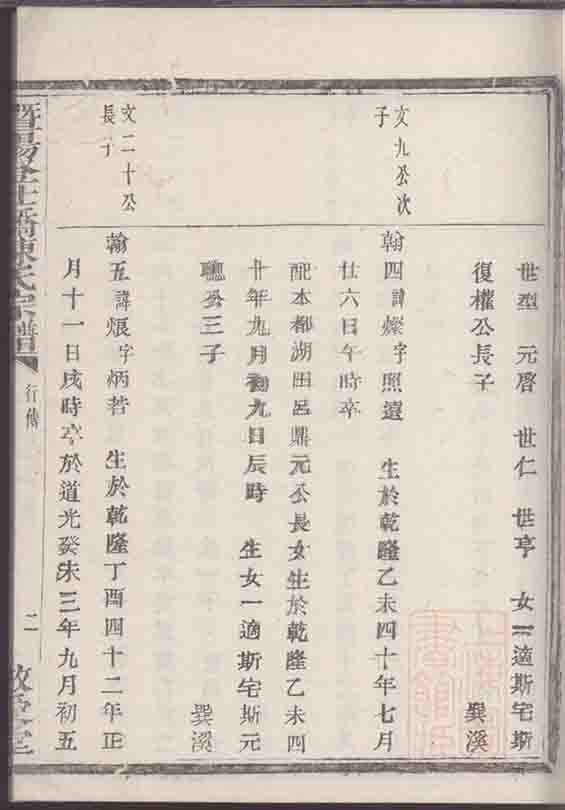 世型 元啓 世仁 世亨 女二適斯宅斯
復權公長子 巽溪
文九公次子
翰四諱燦字照遠 生於乾隆乙未四十年七月
廿六日午時卒
配本都湖田呂鼎元公長女生於乾隆乙未四
十年九月初九日辰時 生女一適斯宅斯元
聰公三子 巽溪
文二十公長子
翰五諱烺字炳若 生於乾隆丁酉四十二年正
月十一日戌時卒於道光癸未三年九月初五
陳氏宗譜
行傳
二